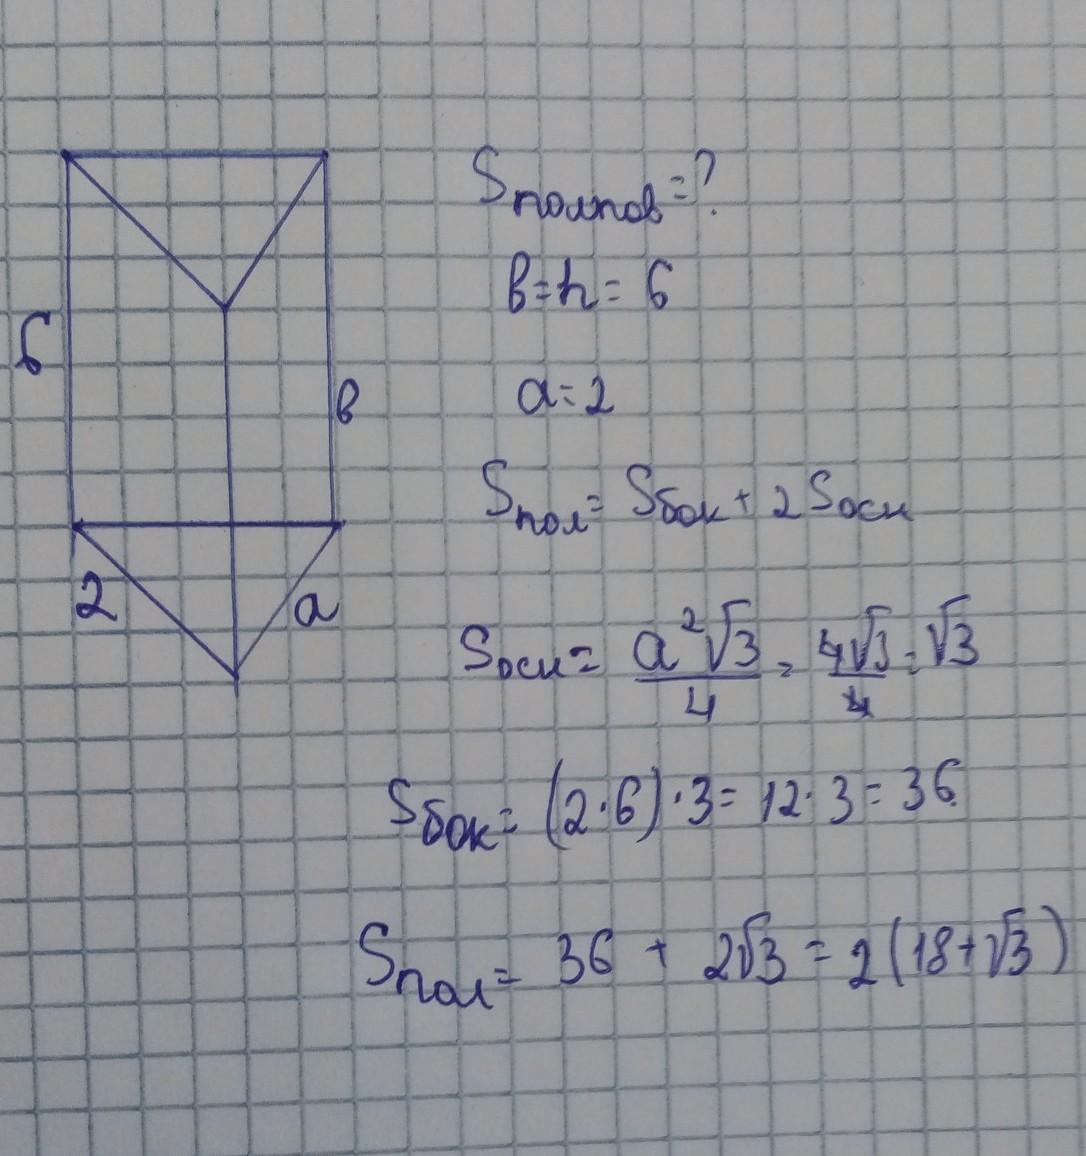 Sполпов=?
в=h=6
6
a=2
в
Sпол=Sбок+2Sосн
2
a
Sосн=a²√3/4=4√3/4=√3
Sбок=(2·6)·3=12·3=36
Sпол=36+2√3=2(18+√3)